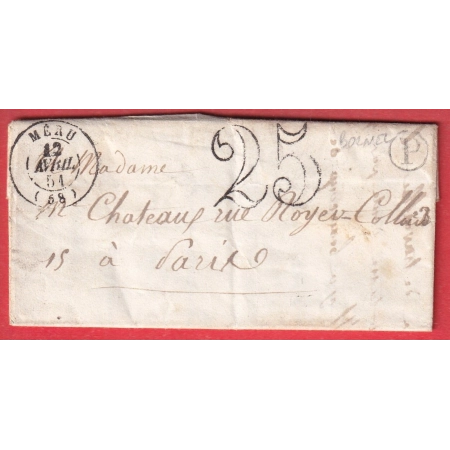 MÉRU
12
AVRIL
51
(58)
25
P
Madame
Chateau, rue Royer-Collard
15 à Paris